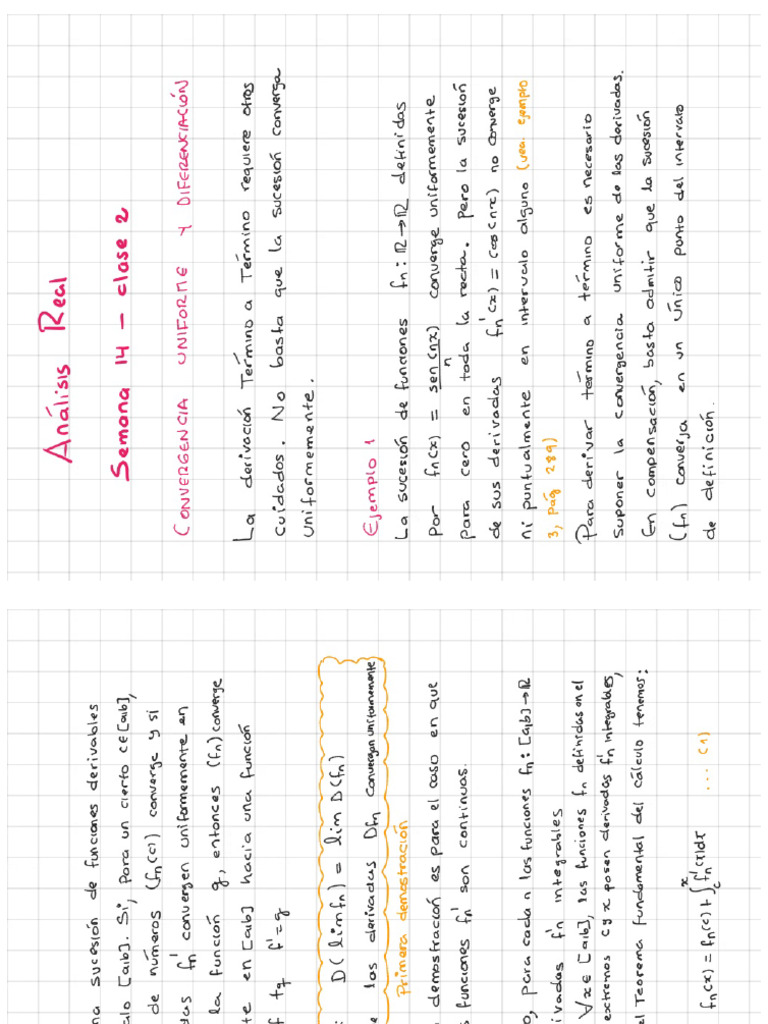 Análisis Real
Semana 14 - clase 2
CONVERGENCIA UNIFORME Y DIFERENCIACIÓN
La derivación Término a Término requiere otros
cuidados. No basta que la sucesión converga
uniformemente.
Ejemplo 1
La sucesión de funciones fn: ℝ→ℝ definidas
por fn(x) = sen(nx)/n converge uniformemente
para cero en toda la recta. Pero la sucesión
de sus derivadas fn'(x) = cos(nx) no converge
ni puntualmente en intervalo alguno (vea ejemplo
3, pág 289)
Para derivar término a término es necesario
suponer la convergencia uniforme de las derivadas.
En compensación, basta admitir que la sucesión
(fn) converja en un único punto del intervalo
de definición.
na sucesión de funciones derivables
alo [a,b]. Si, para un cierto c∈[a,b],
de números (fn(c)) converge y si
das fn' convergen uniformemente en
la función g, entonces (fn) converge
te en [a,b] hacia una función
f tq f'=g
: D(lim fn) = lim D(fn)
e las derivadas Dfn convergan uniformemente
Primera demostración
demostración es para el caso en que
s funciones fn' son continuas.
o, para cada n las funciones fn: [a,b]→ℝ
ivadas fn' integrables
∀x∈[a,b], las funciones fn definidas en el
extremos c y x poseen derivadas fn' integrables,
el Teorema fundamental del cálculo tenemos:
fn(x) = fn(c) + ∫_c^x fn'(x)dx ... (1)